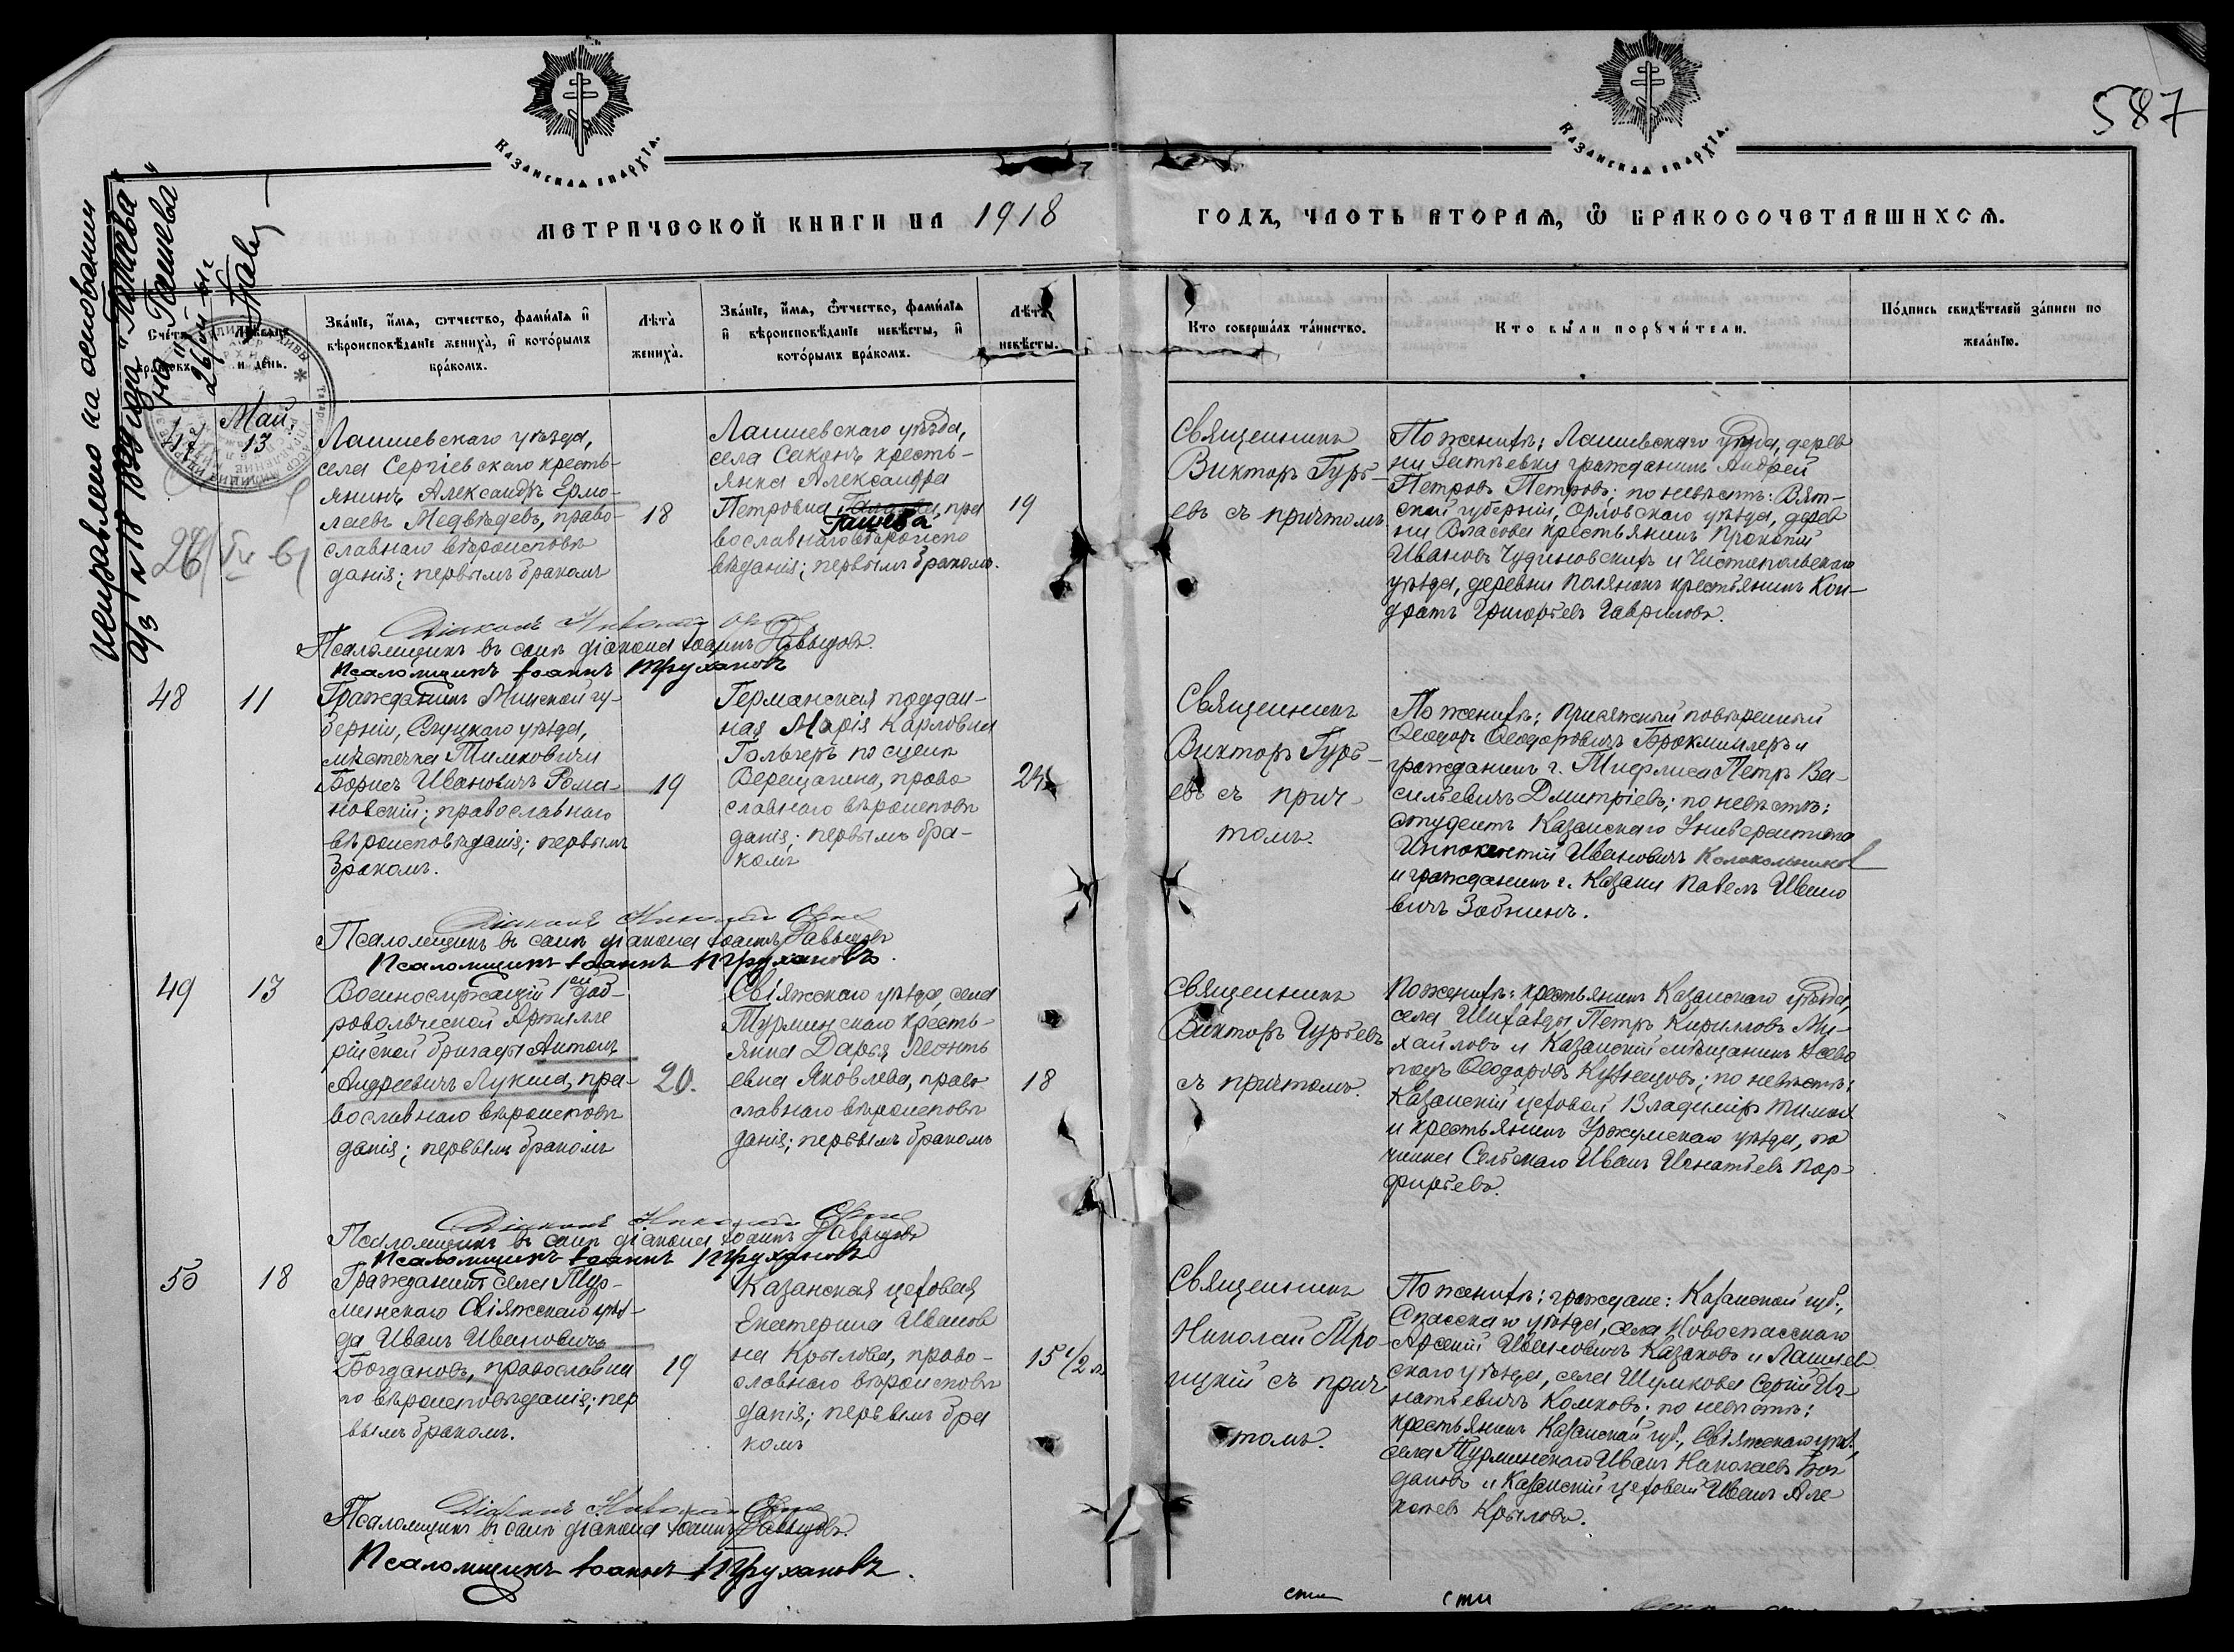 587
Казанская епархїа.
Казанская епархїа.
Метрической книги на 1918
годъ, часть вторая, ѡ бракосочетавшихся.
исправлено на основании
а/з №18 1939 года "
на "Гашева"
Счетъ браковъ.
и день.
Званїе, имя, отчество, фамилїа и
вѣроисповѣданїе жениха, и которымъ
бракомъ.
Лѣта
жениха.
Званїе, имя, отчество, фамилїа
и вѣроисповѣданїе невѣсты, и
которымъ бракомъ.
Лѣта
невѣсты.
Кто совершалъ таинство.
Кто были поручители.
Подпись свидѣтелей записи по
желанїю.
47
Май
13
Лаишевскаго уѣзда,
села Сергіевскаго кресть-
янинъ Александръ Ермо-
лаевъ Медвѣдевъ, право-
славнаго вѣроисповѣ
данія; первымъ бракомъ
18
Лаишевскаго уѣзда,
села Саконъ кресть-
янка Александра
Петровна пра
Гашева
вославнаго вѣроиспо
вѣданія; первымъ бракомъ.
19
Священникъ
Викторъ Гурь-
евъ съ причтомъ.
По женихѣ: Лаишевскаго уѣзда, дерев
ни гражданинъ Андрей
Петровъ Петровъ; по невѣстѣ: Вят-
ской губерніи, Орловскаго уѣзда, дерев
ни Власова крестьянинъ Прокопій
Ивановъ Чудиновскихъ и Чистопольскаго
уѣзда, деревни Полянокъ крестьянинъ Кон-
дратъ Григорьевъ Гавриловъ.
Діаконъ Николай
Псаломщикъ въ санѣ діакона Іоаннъ Давыдовъ.
Псаломщикъ Іоаннъ Трухановъ
48
11
Гражданинъ Минской гу-
берніи, Слуцкаго уѣзда,
мѣстечка Тимковичи
Борисъ Ивановичъ Рома-
новскій; православнаго
вѣроисповѣданія; первымъ
бракомъ.
19
Германская поддан-
ная Марія Карловна
Гольгеръ по сценѣ
Верещагина, право
славнаго вѣроисповѣ
данія; первымъ бра-
комъ
Священникъ
Викторъ Гурь-
евъ съ прич-
томъ.
По женихѣ: присяжный повѣренный
Ѳеодоръ Ѳеодоровичъ Брокмиллеръ и
гражданинъ г. Тифлиса Петръ Ва-
сильевичъ Дмитріевъ; по невѣстѣ:
студентъ Казанскаго Университета
Иннокентій Ивановичъ Колокольников
и гражданинъ г. Казани Павелъ Ивано
вичъ Зобнинъ.
Діаконъ Николай
Псаломщикъ въ санѣ діакона Іоаннъ Давыдовъ
Псаломщикъ Іоаннъ Трухановъ.
49
13
Военнослужащій 1ой доб-
ровольческой Артилле
рійской бригады Антонъ
Андреевичъ Лукша, пра-
вославнаго вѣроисповѣ
данія; первымъ бракомъ
20.
Свіяжскаго уѣзда, села
Турминскаго кресть-
янка Дарья Леонть
евна Яковлева, право
славнаго вѣроисповѣ
данія; первымъ бракомъ
18
Священникъ
Викторъ Гурьевъ
съ причтомъ.
По женихѣ: крестьянинъ Казанскаго уѣзда,
села Шигазды Петръ Кирилловъ Ми-
хайловъ и Казанскій мѣщанинъ Всево
лодъ Ѳеодоровъ Кузнецовъ; по невѣстѣ:
Казанскій цеховой Владиміръ
и крестьянинъ Уржумскаго уѣзда, по
чинка Сельскаго Иванъ Игнатьевъ Пор-
фирьевъ.
Діаконъ Николай
Псаломщикъ въ санѣ діакона Іоаннъ Давыдовъ
Псаломщикъ Іоаннъ Трухановъ
50
18
Гражданинъ села Тур-
минскаго Свіяжскаго уѣз-
да Иванъ Ивановичъ
Богдановъ, православна
го вѣроисповѣданія; пер
вымъ бракомъ.
19
Казанская цеховая
Екатерина Иванов
на Крылова, право-
славнаго вѣроисповѣ
данія; первымъ бра
комъ
15 1/2 л.
Священникъ
Николай Тро-
ицкій съ прич
томъ.
По женихѣ: граждане: Казанской губ.,
Спасскаго уѣзда, села Новоспасскаго
Арсеній Ивановичъ Казаковъ и Лаишев
скаго уѣзда, села Шумкова Сергій Иг-
натьевичъ Комковъ; по невѣстѣ:
крестьянинъ Казанской губ., Свіяжскаго уѣз.,
села Турминскаго Иванъ Николаевъ Бог
дановъ и Казанскій цеховой Иванъ Але
ксѣевъ Крыловъ.
Діаконъ Николай
Псаломщикъ въ санѣ діакона Іоаннъ Давыдовъ.
Псаломщикъ Іоаннъ Трухановъ.